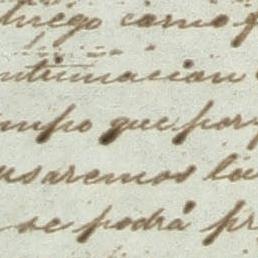 luego como p
ntimacion
mpo que por
usaremos la
se podrá pr